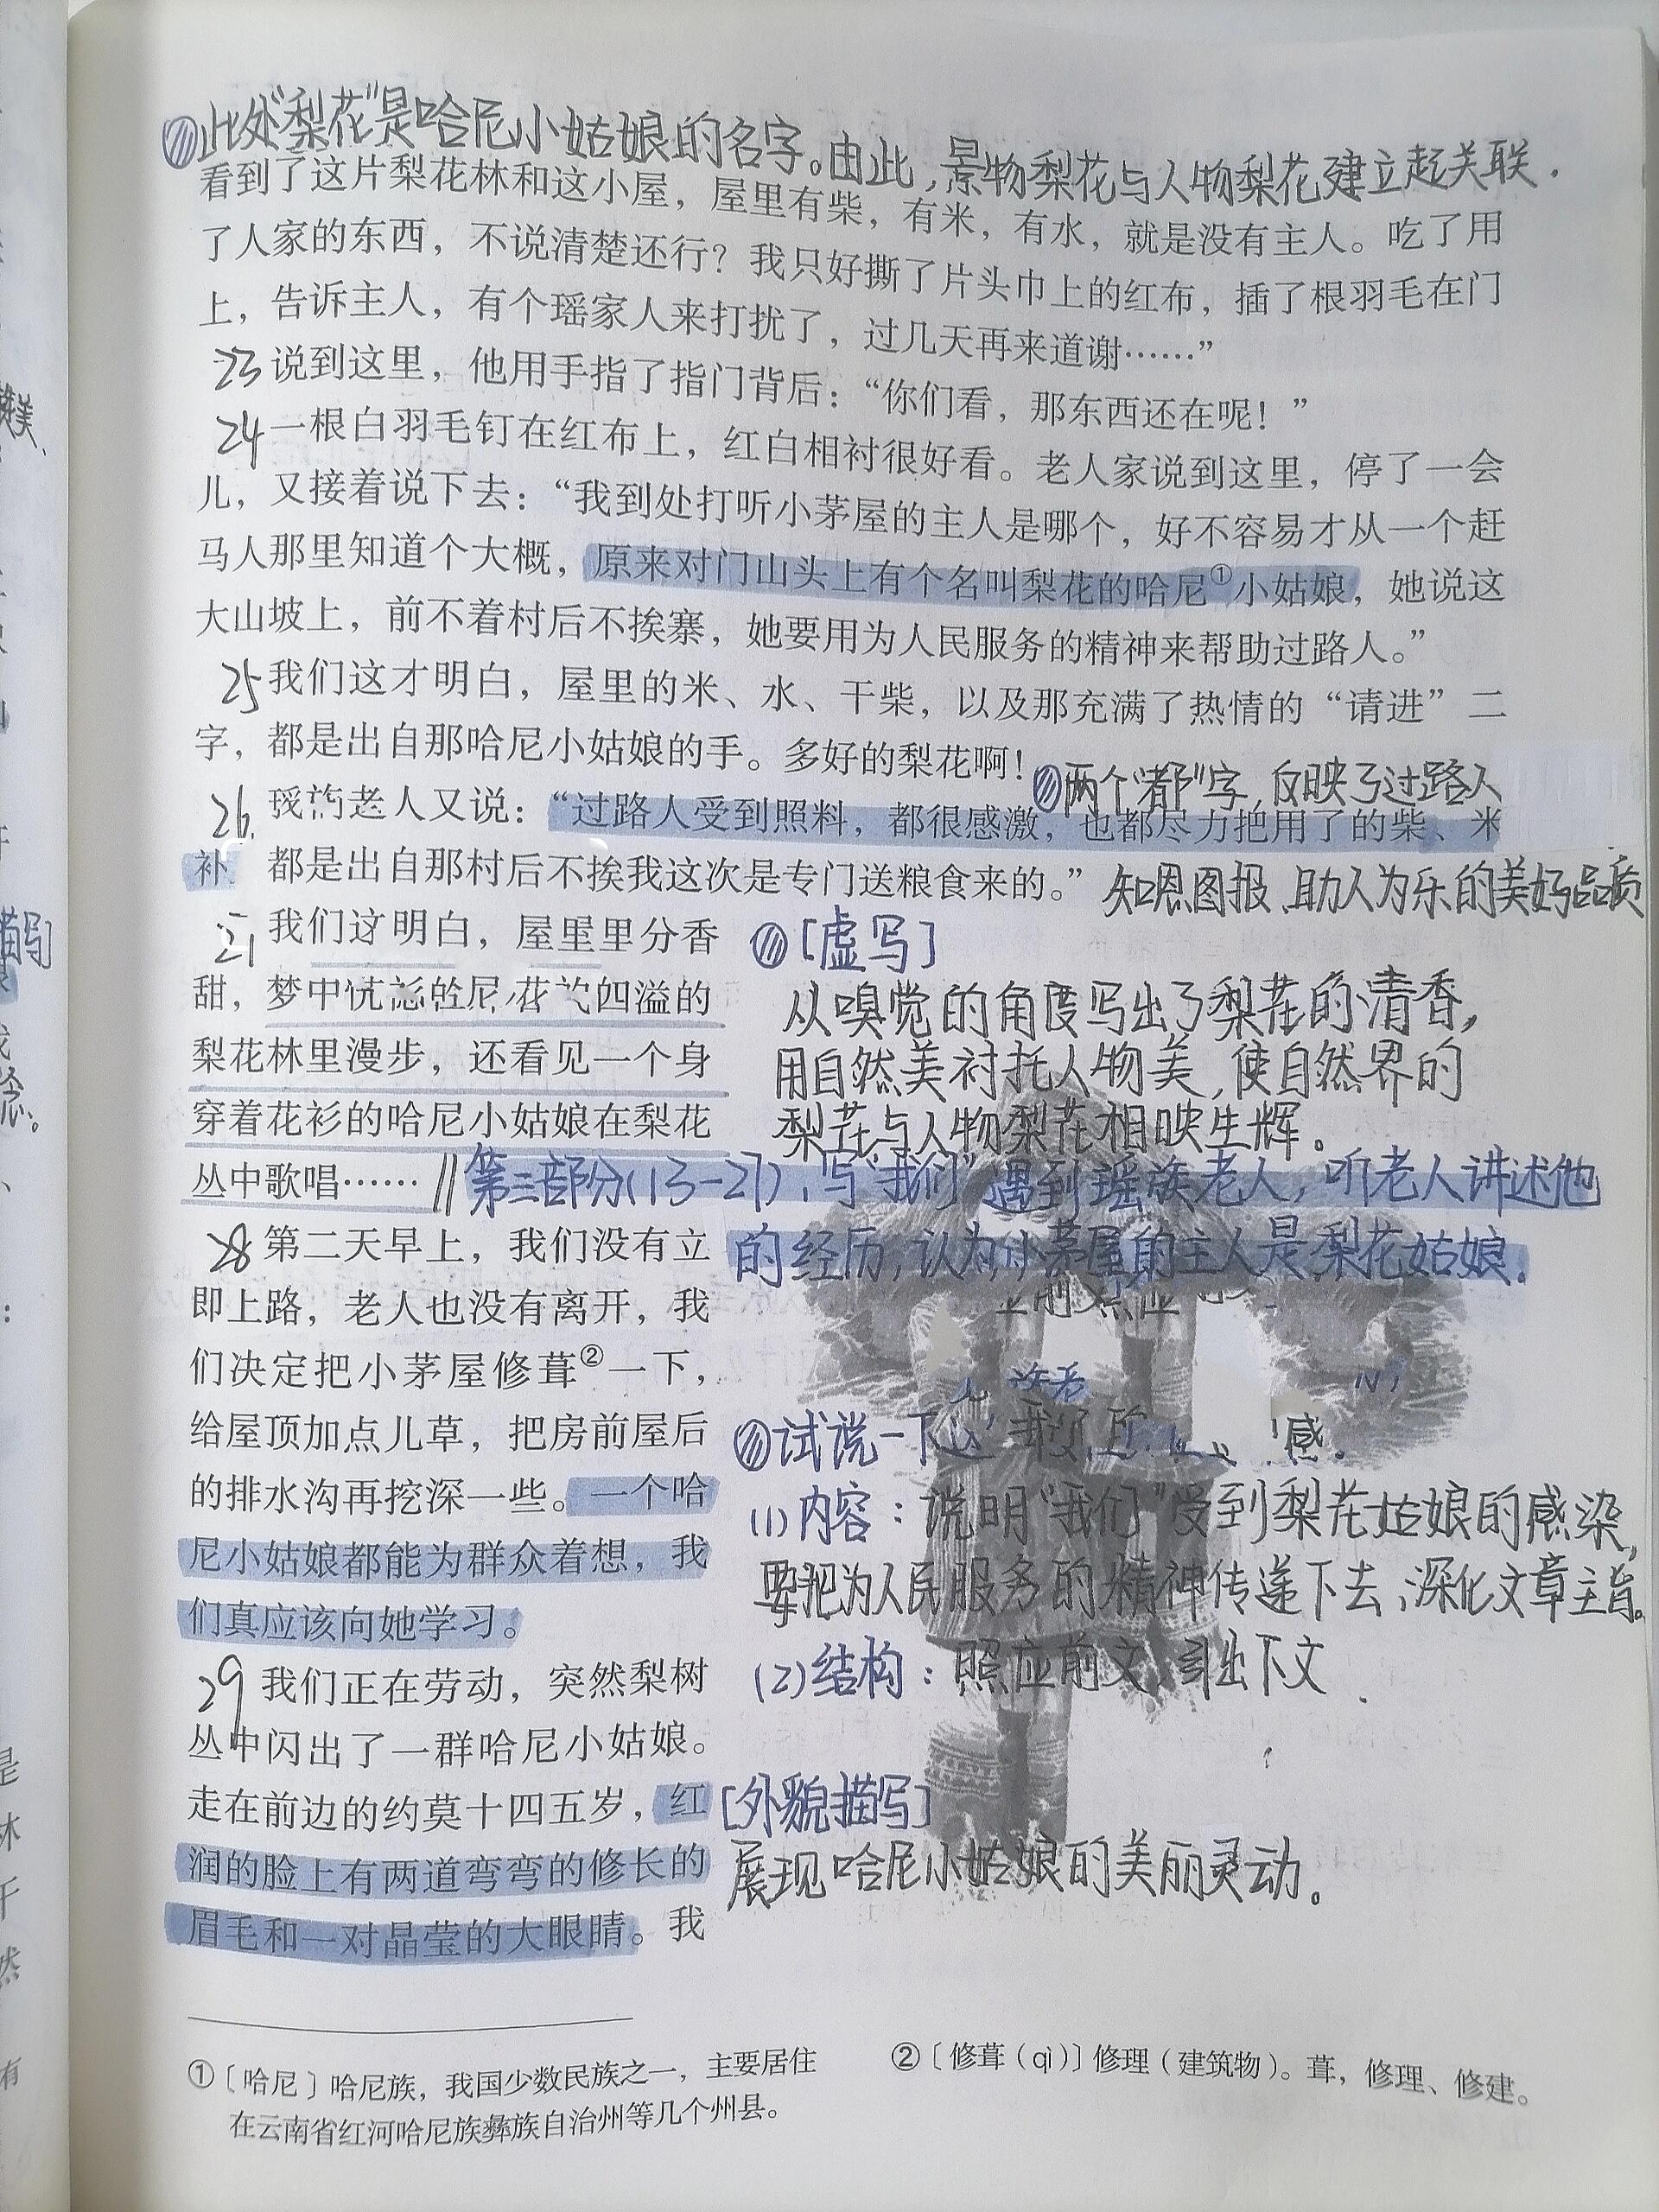 此处“梨花”是哈尼小姑娘的名字。由此,景物梨花与人物梨花建立起关联.
看到了这片梨花林和这小屋，屋里有柴，有米，有水，就是没有主人。吃了用
了人家的东西，不说清楚还行？我只好撕了片头巾上的红布，插了根羽毛在门
上，告诉主人，有个瑶家人来打扰了，过几天再来道谢……”
23 说到这里，他用手指了指门背后：“你们看，那东西还在呢！”
24 一根白羽毛钉在红布上，红白相衬很好看。老人家说到这里，停了一会
儿，又接着说下去：“我到处打听小茅屋的主人是哪个，好不容易才从一个赶
马人那里知道个大概，原来对门山头上有个名叫梨花的哈尼①小姑娘，她说这
大山坡上，前不着村后不挨寨，她要用为人民服务的精神来帮助过路人。”
25 我们这才明白，屋里的米、水、干柴，以及那充满了热情的“请进”二
字，都是出自那哈尼小姑娘的手。多好的梨花啊！
两个“都”字,反映了过路人
26 老人又说：“过路人受到照料，都很感激，也都尽力把用了的柴、米
补 都是出自那村后不挨我这次是专门送粮食来的。”
知恩图报、助人为乐的美好品质
我们这明白，屋里里分香
甜，梦中 花 四溢的
梨花林里漫步，还看见一个身
穿着花衫的哈尼小姑娘在梨花
丛中歌唱……
[虚写]
从嗅觉的角度写出了梨花的清香,
用自然美衬托人物美,使自然界的
梨花与人物梨花相映生辉。
第三部分(13-27),写“我们”遇到瑶族老人,听老人讲述他
的经历,认为小茅屋的主人是梨花姑娘.
28 第二天早上，我们没有立
即上路，老人也没有离开，我
们决定把小茅屋修葺②一下，
给屋顶加点儿草，把房前屋后
的排水沟再挖深一些。一个哈
尼小姑娘都能为群众着想，我
们真应该向她学习。
试说一下 感。
(1)内容：说明“我们”受到梨花姑娘的感染,
要把为人民服务的精神传递下去,深化文章主旨。
(2)结构：照应前文,引出下文.
29 我们正在劳动，突然梨树
丛中闪出了一群哈尼小姑娘。
走在前边的约莫十四五岁，红
润的脸上有两道弯弯的修长的
眉毛和一对晶莹的大眼睛。我
[外貌描写]
展现哈尼小姑娘的美丽灵动。
①〔哈尼〕哈尼族，我国少数民族之一，主要居住
在云南省红河哈尼族彝族自治州等几个州县。
②〔修葺（qì）〕修理（建筑物）。葺，修理、修建。